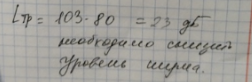 Lтр = 103 - 80 = 23 дБ
необходимо снизить
уровень шума.